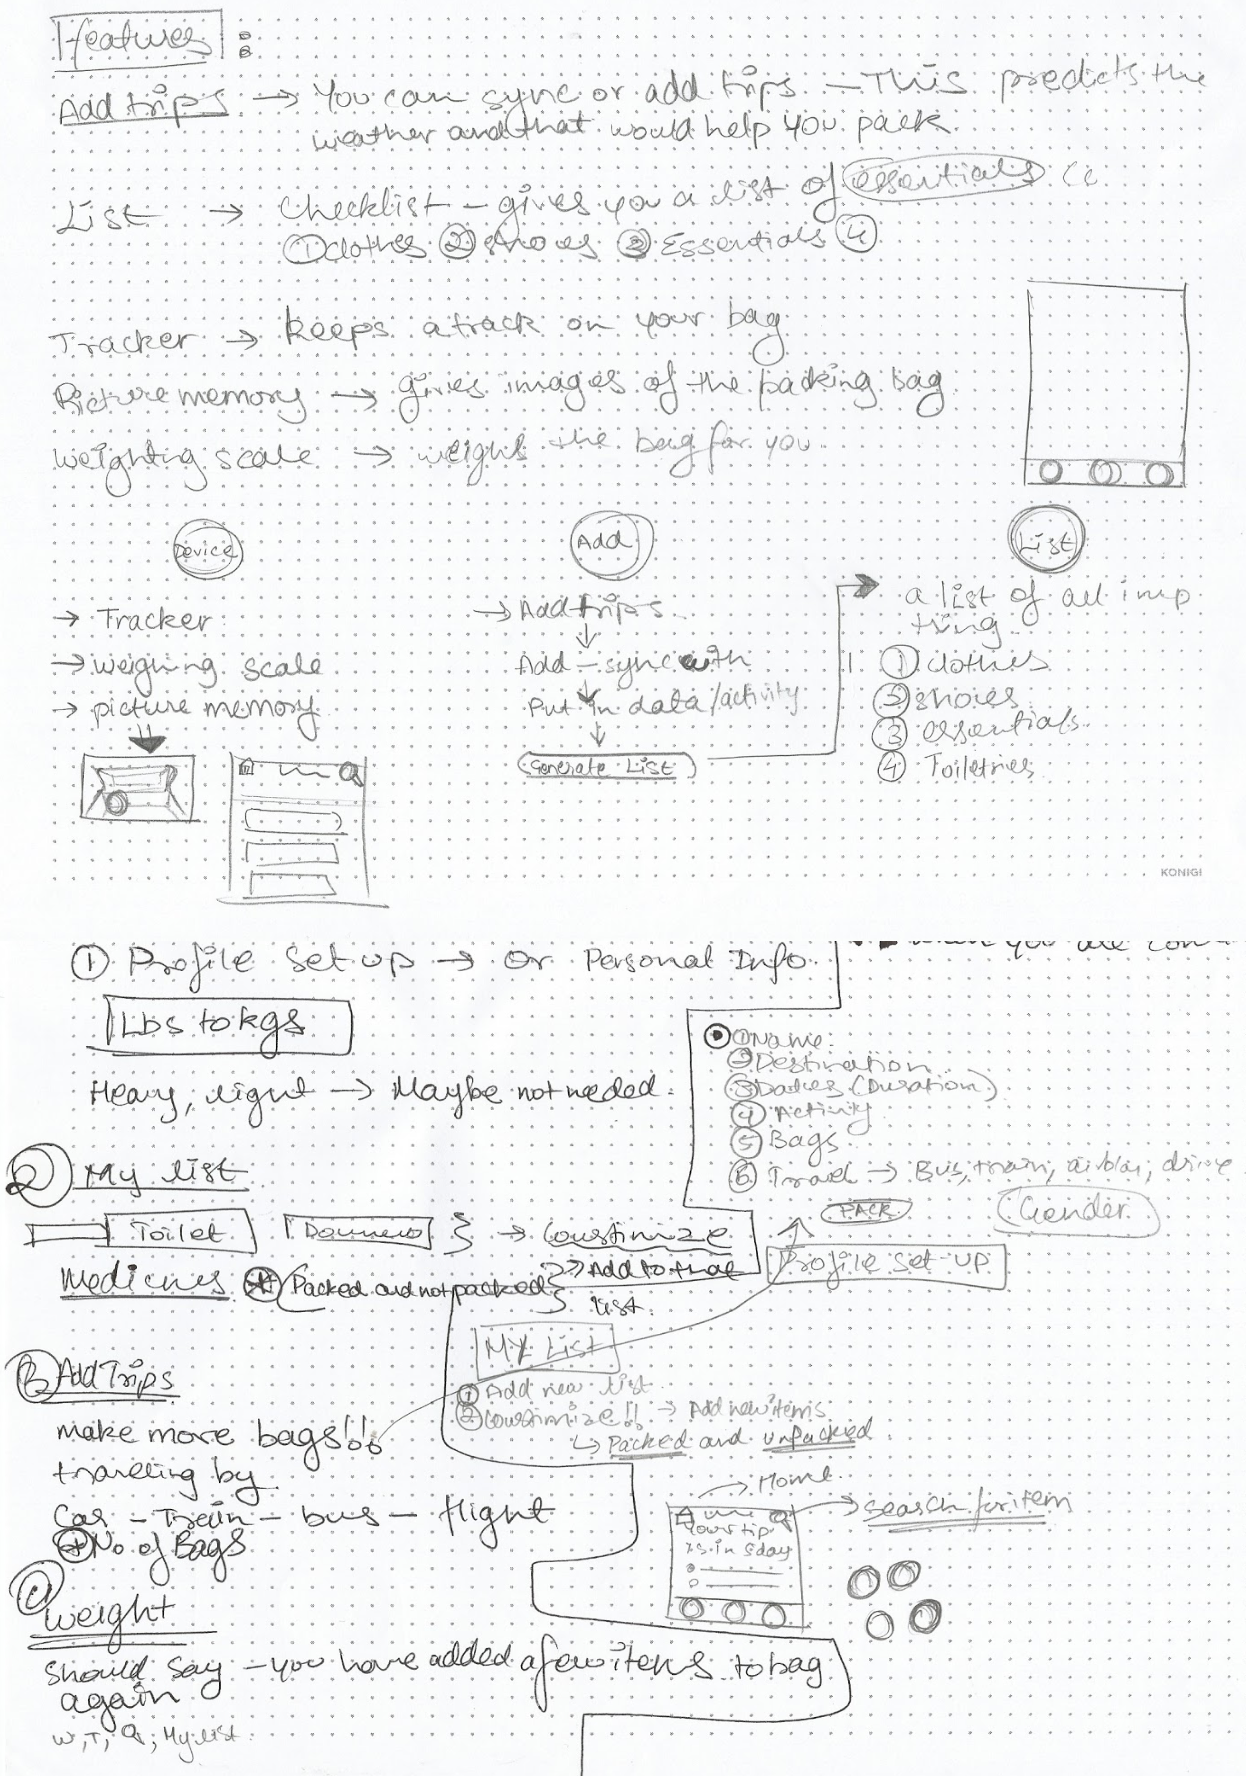 Features :
Add trips → You can sync or add trips – This predicts the
weather and that would help you pack
List → Checklist – gives you a list of essentials
① clothes ② shoes ③ Essentials ④
Tracker → keeps a track on your bag
Picture memory → gives images of the packing bag
weighting scale → weighs the bag for you
Device
→ Tracker
→ weighing scale
→ picture memory
Add
→ Add trips
↓
Add – sync with
↓
Put in data/activity
↓
Generate List
List
a list of all imp
thing
① clothes
② shoes
③ essentials
④ Toiletries
KONIGI
① Profile set up → or Personal Info
Lbs to kgs
Heavy, light → Maybe not needed.
when you are
① Name:
② Destination
③ Dates (Duration)
④ Activity
⑤ Bags
⑥ Travel → Bus, train, drive
PACK
Gender
Profile set-up
② My list
Toilet
→ Coustimize
→ Add to that
list.
Medicines Packed and not packed
MY List
① Add new list
② Coustimize!! → Add new items
↳ Packed and unpacked
③ Add Trips
make more bags!!
traveling by
Car – Train – bus – flight
+ No of Bags
→ Home
→ Search for item
Your tip
is in 5 day
weight
should say – you have added a few items to bag
again
W, T, Q, My list